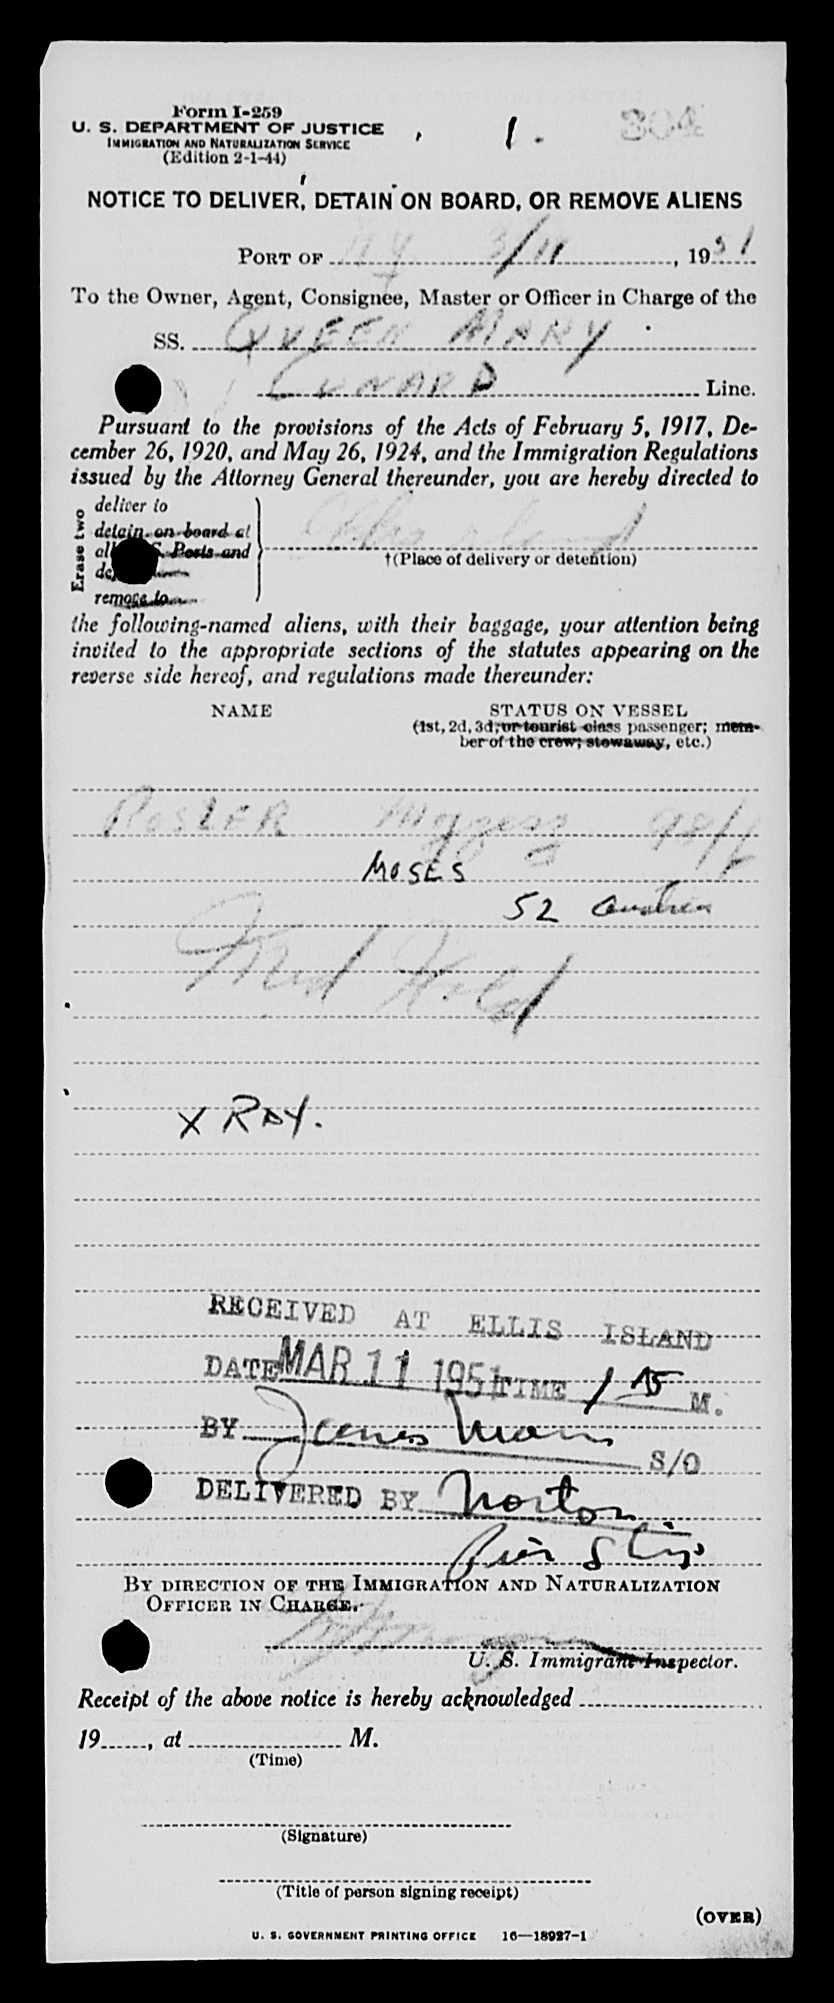 Form I-259
U. S. DEPARTMENT OF JUSTICE
IMMIGRATION AND NATURALIZATION SERVICE
(Edition 2-1-44)
1.
304
NOTICE TO DELIVER, DETAIN ON BOARD, OR REMOVE ALIENS
PORT OF NY 3/11, 1951
To the Owner, Agent, Consignee, Master or Officer in Charge of the
SS. QUEEN MARY
CUNARD Line.
Pursuant to the provisions of the Acts of February 5, 1917, De-
cember 26, 1920, and May 26, 1924, and the Immigration Regulations
issued by the Attorney General thereunder, you are hereby directed to
Erase two
deliver to
detain on board at
all U. S. Ports and
remove to
Ellis Island
†(Place of delivery or detention)
the following-named aliens, with their baggage, your attention being
invited to the appropriate sections of the statutes appearing on the
reverse side hereof, and regulations made thereunder:
NAME
STATUS ON VESSEL
(1st, 2d, 3d, or tourist class passenger; mem-
ber of the crew; stowaway, etc.)
ROSLER
MOSES
52 Austria
Med Hold
X RAY.
RECEIVED AT ELLIS ISLAND
DATE MAR 11 1951 TIME 1 15 M.
BY James S/O
DELIVERED BY Norton
BY DIRECTION OF THE IMMIGRATION AND NATURALIZATION
OFFICER IN CHARGE.
U. S. Immigrant Inspector.
Receipt of the above notice is hereby acknowledged
19, at M.
(Time)
(Signature)
(Title of person signing receipt)
(OVER)
U. S. GOVERNMENT PRINTING OFFICE 16—18927-1